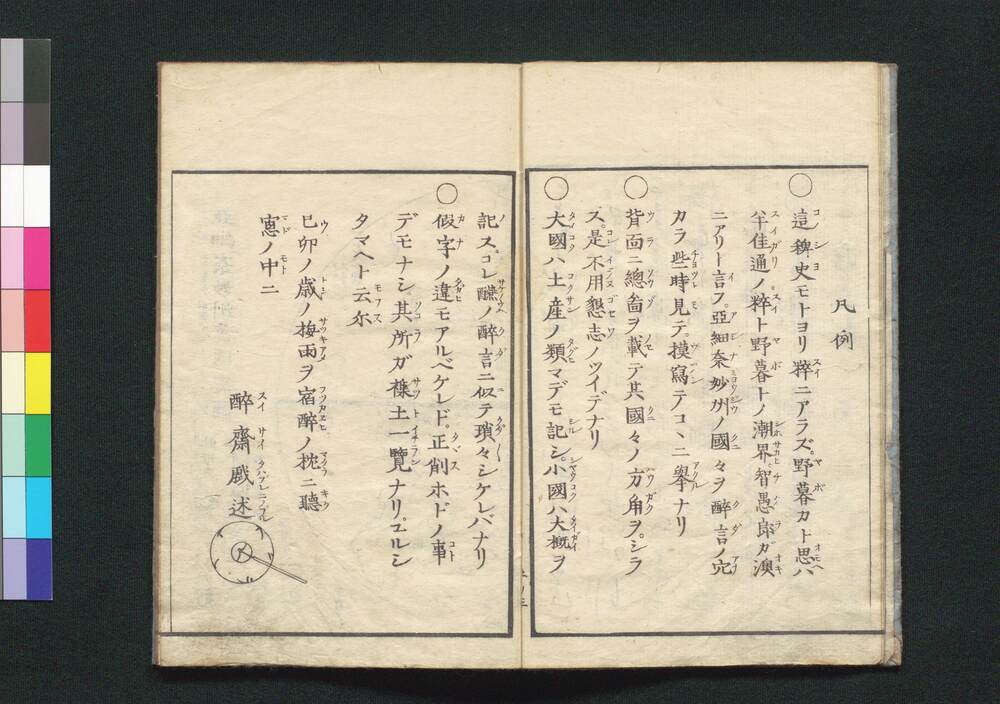 凡例
○這稗史モトヨリ粹ニアラズ。野暮カト思ハ
半佳通ノ粹ト野暮トノ潮界智愚郎ガ澳
ニアリト言フ。亞細奈妙州ノ國々ヲ醉言ノ穴
カラ些時見テ。摸寫テコヽニ擧ナリ
○背面ニ總畵ヲ載テ其國々ノ方角ヲ。シラ
ス。是不用懇志ノツイデナリ
○大國ハ土産ノ類マデモ記シ。小國ハ大概ヲ
記ス。コレ醺ノ醉言ニ似テ瑣々シケレバナリ
○假字ノ違モアルベケレド。正削ホドノ事
デモナシ。其所ガ穟土一覽ナリ。ユルシ
タマヘト云尓
巳卯ノ歳ノ梅雨ヲ宿醉ノ枕ニ聽
窓ノ中ニ
醉齋戲述